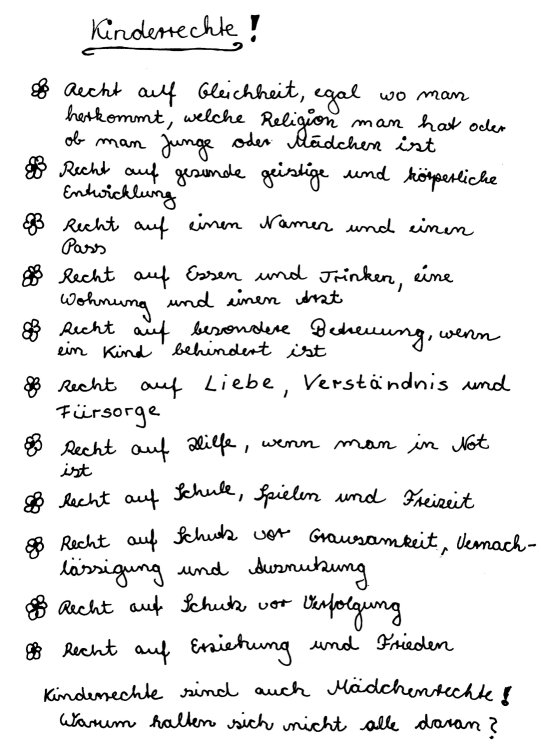 Kinderrechte!
Recht auf Gleichheit, egal wo man
herkommt, welche Religion man hat oder
ob man Junge oder Mädchen ist
Recht auf gesunde geistige und körperliche
Entwicklung
Recht auf einen Namen und einen
Pass
Recht auf Essen und Trinken, eine
Wohnung und einen Arzt
Recht auf besondere Betreuung, wenn
ein Kind behindert ist
Recht auf Liebe, Verständnis und
Fürsorge
Recht auf Hilfe, wenn man in Not
ist
Recht auf Schule, Spielen und Freizeit
Recht auf Schutz vor Grausamkeit, Vernach-
lässigung und Ausnutzung
Recht auf Schutz vor Verfolgung
Recht auf Erziehung und Frieden
Kinderrechte sind auch Mädchenrechte!
Warum halten sich nicht alle daran?